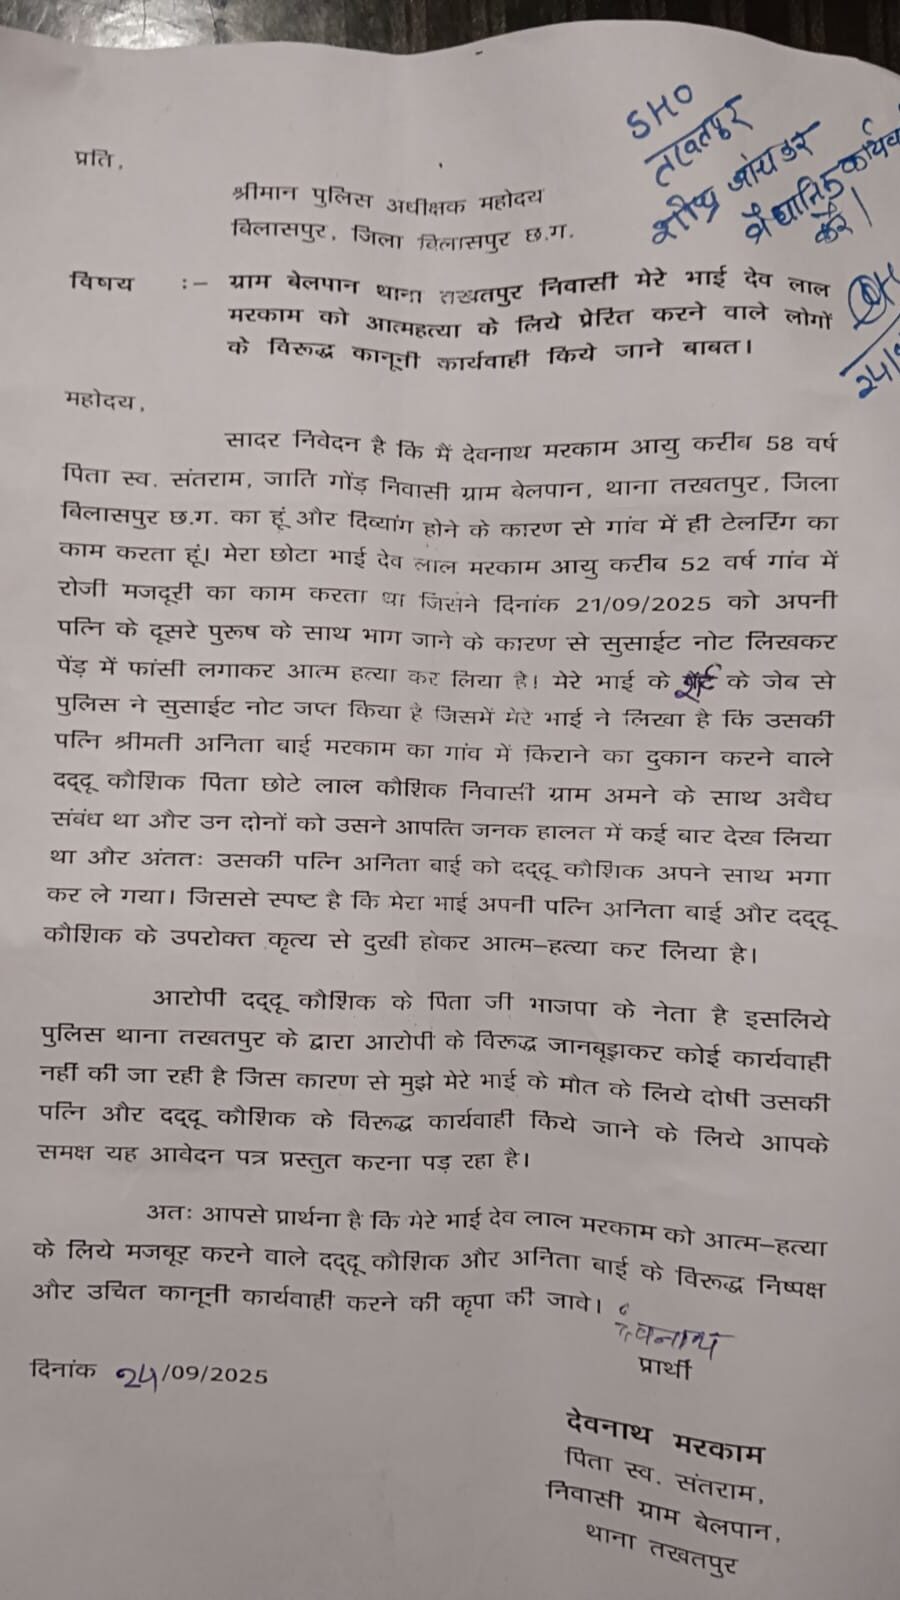 SHO
तखतपुर
शीघ्र जांच कर
वैधानिक कार्यवा
करें।
24/
प्रति,
श्रीमान पुलिस अधीक्षक महोदय
बिलासपुर, जिला बिलासपुर छ.ग.
विषय :- ग्राम बेलपान थाना तखतपुर निवासी मेरे भाई देव लाल
मरकाम को आत्महत्या के लिये प्रेरित करने वाले लोगों
के विरूद्ध कानूनी कार्यवाही किये जाने बाबत।
महोदय,
सादर निवेदन है कि मैं देवनाथ मरकाम आयु करीब 58 वर्ष
पिता स्व. संतराम, जाति गोंड़ निवासी ग्राम बेलपान, थाना तखतपुर, जिला
बिलासपुर छ.ग. का हूं और दिव्यांग होने के कारण से गांव में ही टेलरिंग का
काम करता हूं। मेरा छोटा भाई देव लाल मरकाम आयु करीब 52 वर्ष गांव में
रोजी मजदूरी का काम करता था जिसने दिनांक 21/09/2025 को अपनी
पत्नि के दूसरे पुरूष के साथ भाग जाने के कारण से सुसाईट नोट लिखकर
पेंड़ में फांसी लगाकर आत्म हत्या कर लिया है। मेरे भाई के के जेब से
पुलिस ने सुसाईट नोट जप्त किया है जिसमें मेरे भाई ने लिखा है कि उसकी
पत्नि श्रीमती अनिता बाई मरकाम का गांव में किराने का दुकान करने वाले
दद्दू कौशिक पिता छोटे लाल कौशिक निवासी ग्राम अमने के साथ अवैध
संबंध था और उन दोनों को उसने आपत्ति जनक हालत में कई बार देख लिया
था और अंततः उसकी पत्नि अनिता बाई को दद्दू कौशिक अपने साथ भगा
कर ले गया। जिससे स्पष्ट है कि मेरा भाई अपनी पत्नि अनिता बाई और दद्दू
कौशिक के उपरोक्त कृत्य से दुखी होकर आत्म-हत्या कर लिया है।
आरोपी दद्दू कौशिक के पिता जी भाजपा के नेता है इसलिये
पुलिस थाना तखतपुर के द्वारा आरोपी के विरूद्ध जानबूझकर कोई कार्यवाही
नहीं की जा रही है जिस कारण से मुझे मेरे भाई के मौत के लिये दोषी उसकी
पत्नि और दद्दू कौशिक के विरूद्ध कार्यवाही किये जाने के लिये आपके
समक्ष यह आवेदन पत्र प्रस्तुत करना पड़ रहा है।
अतः आपसे प्रार्थना है कि मेरे भाई देव लाल मरकाम को आत्म-हत्या
के लिये मजबूर करने वाले दद्दू कौशिक और अनिता बाई के विरूद्ध निष्पक्ष
और उचित कानूनी कार्यवाही करने की कृपा की जावे।
देवनाथ
प्रार्थी
दिनांक 24/09/2025
देवनाथ मरकाम
पिता स्व. संतराम,
निवासी ग्राम बेलपान,
थाना तखतपुर